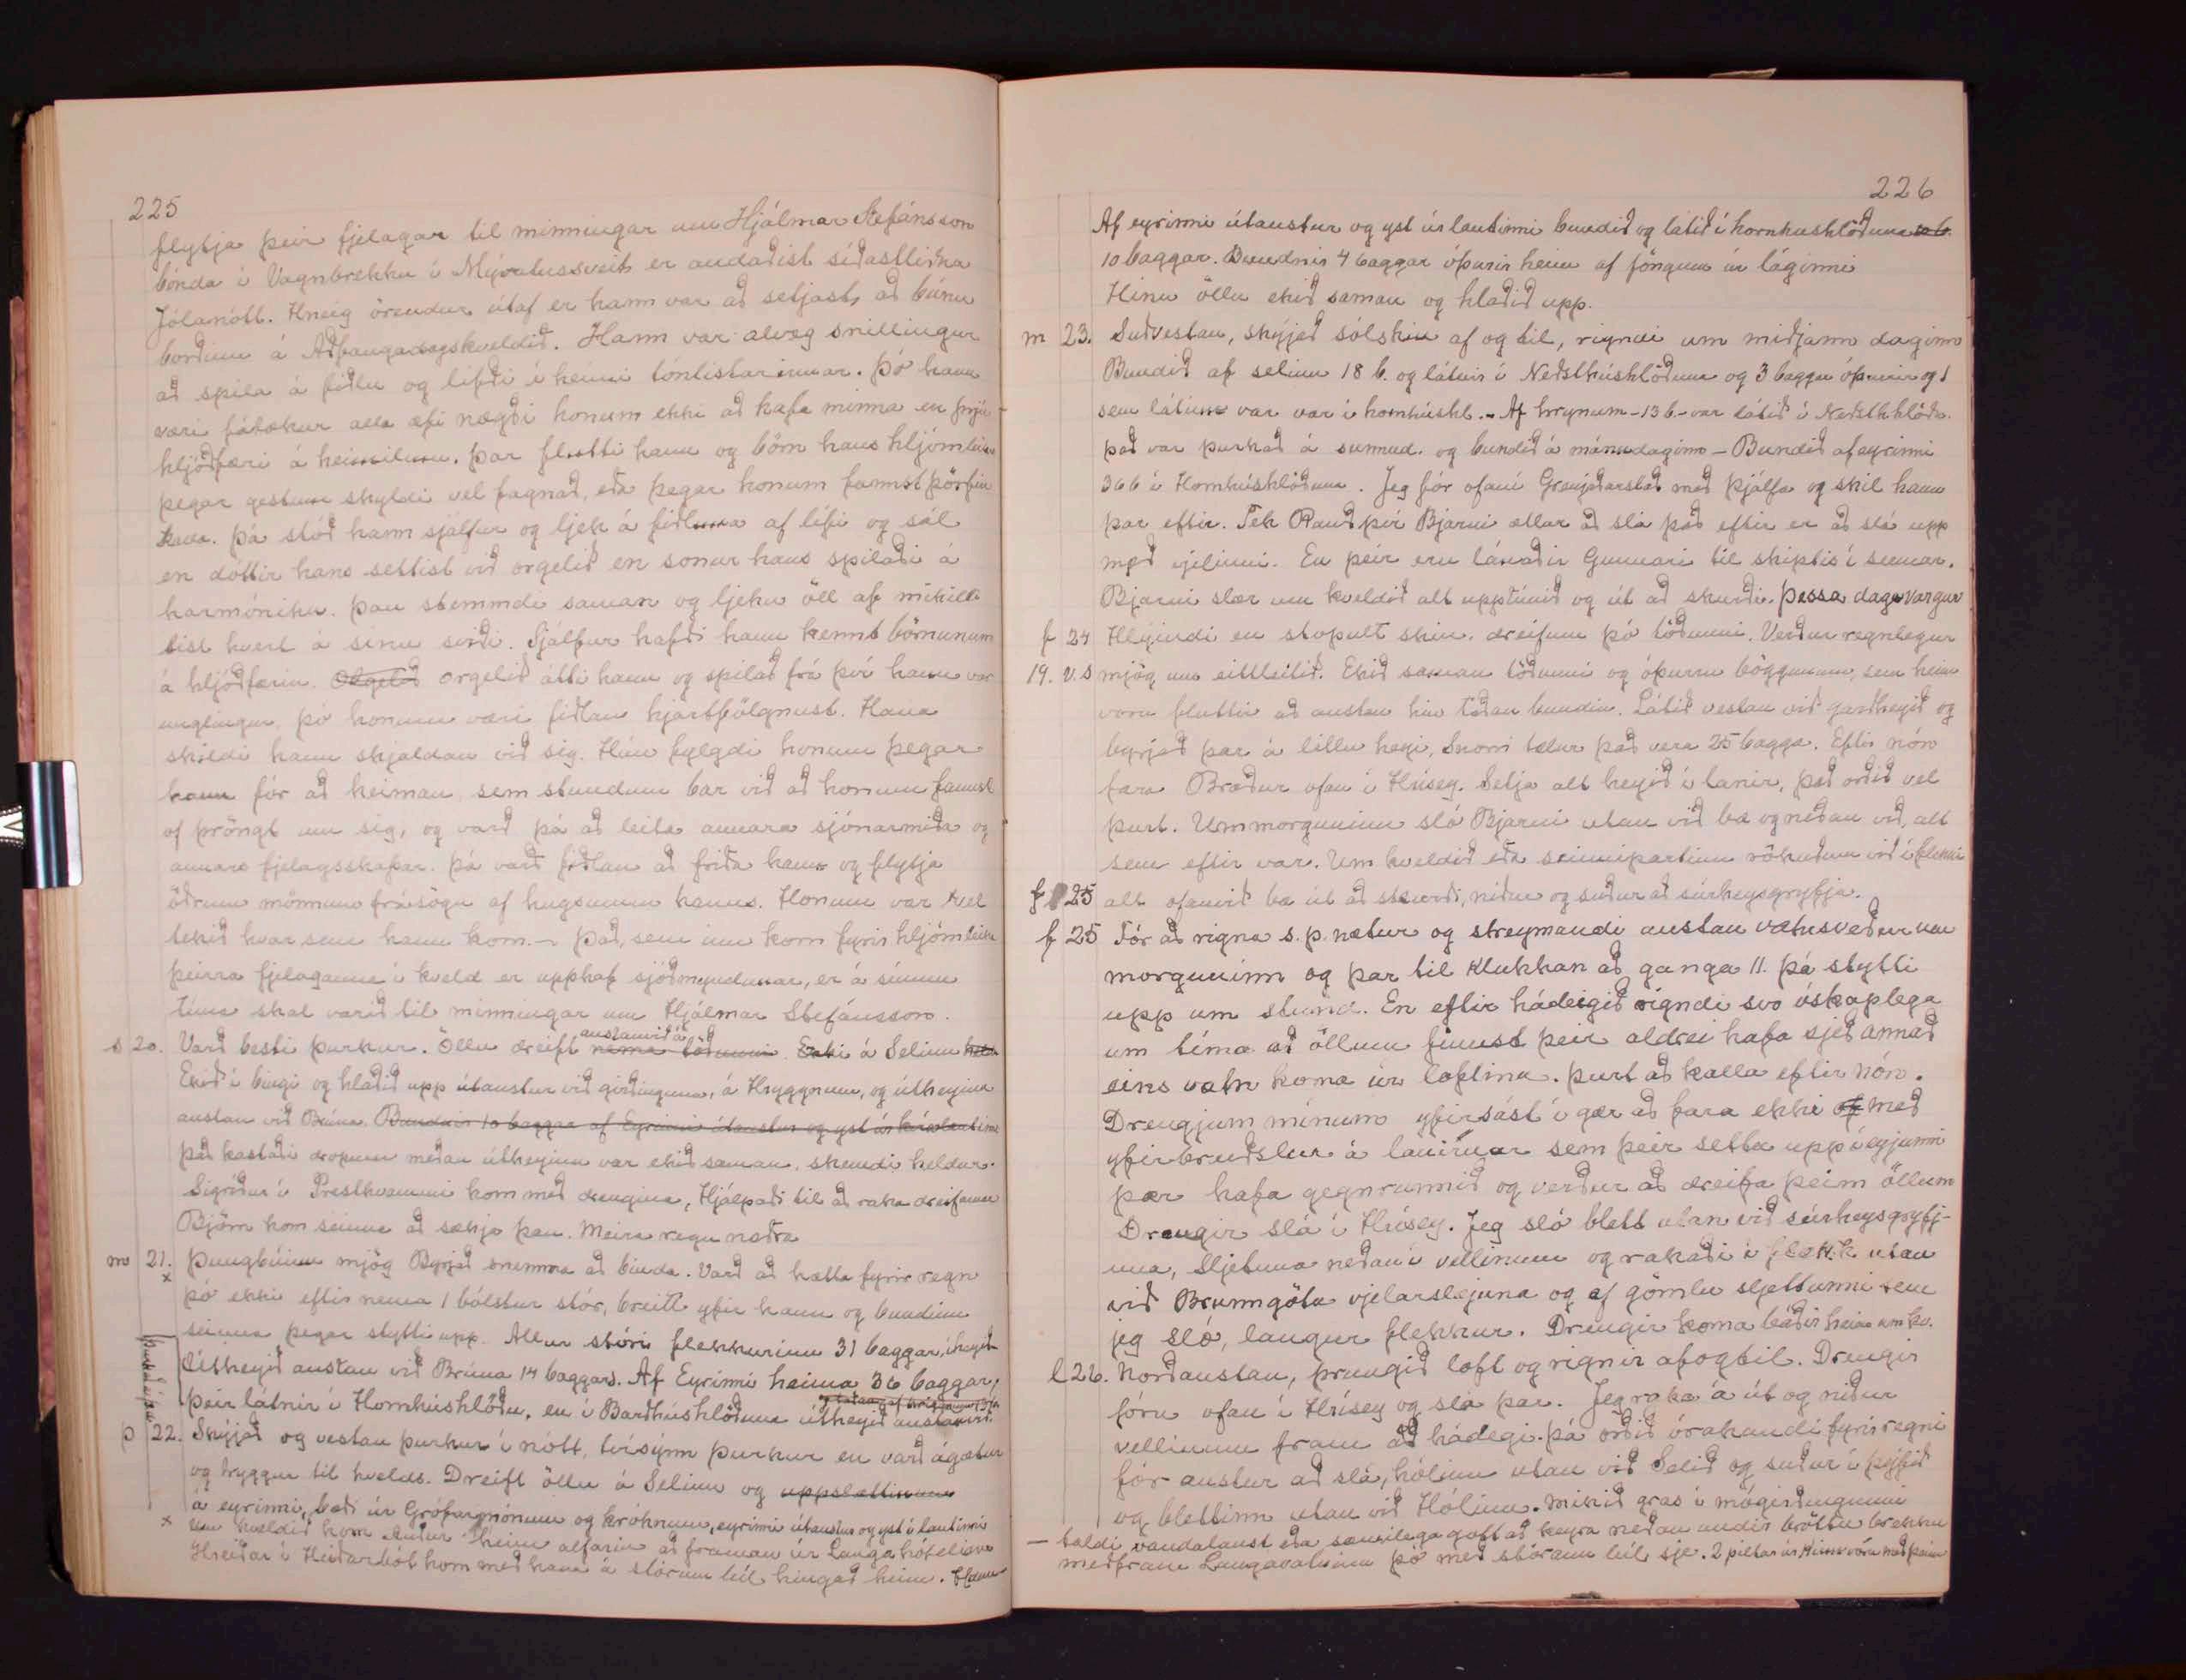 225
flytja þeir fjelagar til minningar um Hjálmar Stefánsson
bónda í Vagnbrekku í Mývatnssveit er andaðist síðastliðna
Jólanótt. Hneig örendur útaf er hann var að setjast, að búnu
borðinu á Aðfangadagskveldið. Hann var alveg snillingur
að spila á fiðlu og lifði í heimi tónlistarinnar. Þó hann
væri fátækur alla æfi nægði honum ekki að hafa minna en þrjú
hljóðfæri á heimilinu. Þar flutti hann og börn hans hljómleika
þegar gestum skyldi vel fagnað, eða þegar honum fannst þörfin
Þá stóð hann sjálfur og ljek á fiðluna af lífi og sál
en dóttir hans settist við orgelið en sonur hans spilaði á
harmóniku. Þau stemmdu saman og ljeku öll af mikilli
list hvert á sínu sviði. Sjálfur hafði hann kennt börnunum
á hljóðfærin. Orgelið orgelið átti hann og spilað frá því hann var
unglingur, þó honum væri fiðlan hjartfólgnust. Hana
skildi hann sjaldan við sig. Hún fylgdi honum þegar
hann fór að heiman, sem stundum bar við að honum fannst
of þröngt um sig, og varð þá að leita annara sjónarmiða og
annars fjelagsskapar. Þá varð fiðlan að friða hann og flytja
öðrum mönnum frásögn af hugsunum hanns. Honum var vel
tekið hvar sem hann kom. - Það, sem inn kom fyrir hljómleika
þeirra fjelaganna í kveld er upphaf sjóðmyndunar, er á sínum
tíma skal varið til minningar um Hjálmar Stefánsson.
s 20. Varð besti þurkur. Öllu dreift nema töðunni austanvið á Selinu
Ekið í bingi og hlaðið upp útaustur við girðinguna, á Hryggnum, og útheyinu
austan við Brúna. Bundnir 10 baggar af Eyrinni útaustur og yst úr lautinni
Það kastaði dropum meðan útheyinu var ekið saman, skemdi heldur.
Sigríður í Presthvammi kom með drengina, Hjálpaði til að raka dreifarnar
Björn kom seinna að sækja þau. Meira regn
m 21. Þungbúinn mjög Byrjað snemma að binda. Varð að hætta fyrir regn
x þó ekki eftir nema 1 bólstur stór, breitt yfir hann og bundinn
seinna þegar stytti upp. Allur stóri flekkurinn 31 baggar, í heyið
Útheyið austan við Brúna 14 baggar. Af Eyrinni heima 36 baggar,
Þeir látnir í Hornhúshlöðu, en í Barðhúshlöðuna útheyið austanvið
þ 22. Skýjað og vestan þurkur í nótt, tvísýnn þurkur en varð ágætur
og tryggur til kvelds. Dreift öllu á Selinu og uppslættinum
á eyrinni, bæði úr Grófarmónum og króknum, eyrinni útaustur og yst í lautinni
x Um kveldið kom heim alfarin að framan úr Lauga hótelinu
Hreiðar í Heiðarbót kom með hana á stórum bíl hingað heim.
226
Af eyrinni útaustur og yst úr lautinni bundið og látið í hornhushlöðuna
10 baggar. Bundnir 4 baggar óþurir heim af föngum úr láginni
Hinu öllu ekið saman og hlaðið upp.
m 23. Suðvestan, skýjað sólskin af og til, rigndi um miðjann daginn
Bundið af selinu 18 b. og látnir í Neðsthúshlöðuna og 3 baggar óþurrir og 1
sem látinn var var í hornhúshl. - Af hrygnum - 13 b. - var látið í Neðsthhlöðu.
það var þurkað á sunnud. og bundið á mánudaginn - Bundið af eyrinni
36 b í Hornhúshlöðuna. Jeg fór ofaní Grenjaðarstað með Þjálfa og skil hann
þar eftir. Tek Rauð því Bjarni ætlar að slá það eftir er að slá upp
með vjelinni. En þeir eru lánaðir Gunnari til skiptis í sumar.
Bjarni slær um kveldið alt upptúnið og út að skurði. Þessa daga vargur
f 24 Hlýindi en stopult skin, dreifum þó töðunni. Verður regnlegur
19. v. s mjög um eittleitið. Ekið saman töðunni og óþurru böggunum, sem heim
voru fluttir að austan hin taðan bundin. Látið vestan við garðheyið og
byrjað þar á litlu heyi, Snorri telur það vera 25 bagga. Eftir nón
fara Bræður ofan í Hrísey. Setja alt heyið í lanir, það orðið vel
þurt. Um morguninn sló Bjarni utan við bæ og neðan við, alt
sem eftir var. Um kveldið eða seinnipartinn rökuðum við í flekki
f 25 alt ofanvið bæ út að skurði, niður og suður að súrheysgryfju.
f 25 Fór að rigna s. p. nætur og streymandi austan vatnsveður um
morguninn og þar til klukkan að ganga 11. þá stytti
upp um stund. En eftir hádeigið rigndi svo óskaplega
um tíma að öllum finnst þeir aldrei hafa sjeð annað
eins vatn koma úr loftinu. Þurt að kalla eftir nón.
Drengjum mínum yfirsást í gær að fara ekki of með
yfirbreiðslur á lanirnar sem þeir settu upp í eyjunni
þær hafa gegnrunnið og verður að dreifa þeim öllum
Drengir slá í Hrísey. Jeg sló blett utan við súrheysgryfj-
una, Sljetuna neðan í vellinum og rakaði í flekk utan
við Brunngötu vjelarslejuna og af gömlu sljettunni sem
jeg sló, langur flekkur. Drengir koma báðir heim um kv.
l 26. Norðaustan, þrungið loft og rignir af og til. Drengir
fóru ofan í Hrísey og slá þar. Jeg raka á út og niður
vellinum fram að hádegi. þá orðið órakandi fyrir regni
fór austur að slá, hólinn utan við Selið og suður í þýfið
og blettinn utan við Hólinn. Mikið gras í mógirðingunni
- taldi vandalaust eða sæmilega gott að keyra neðan undir bröttu brekku
meðfram Langavatninu þó með stórann bíl sje. 2 piltar úr Kinn vóru með þeim